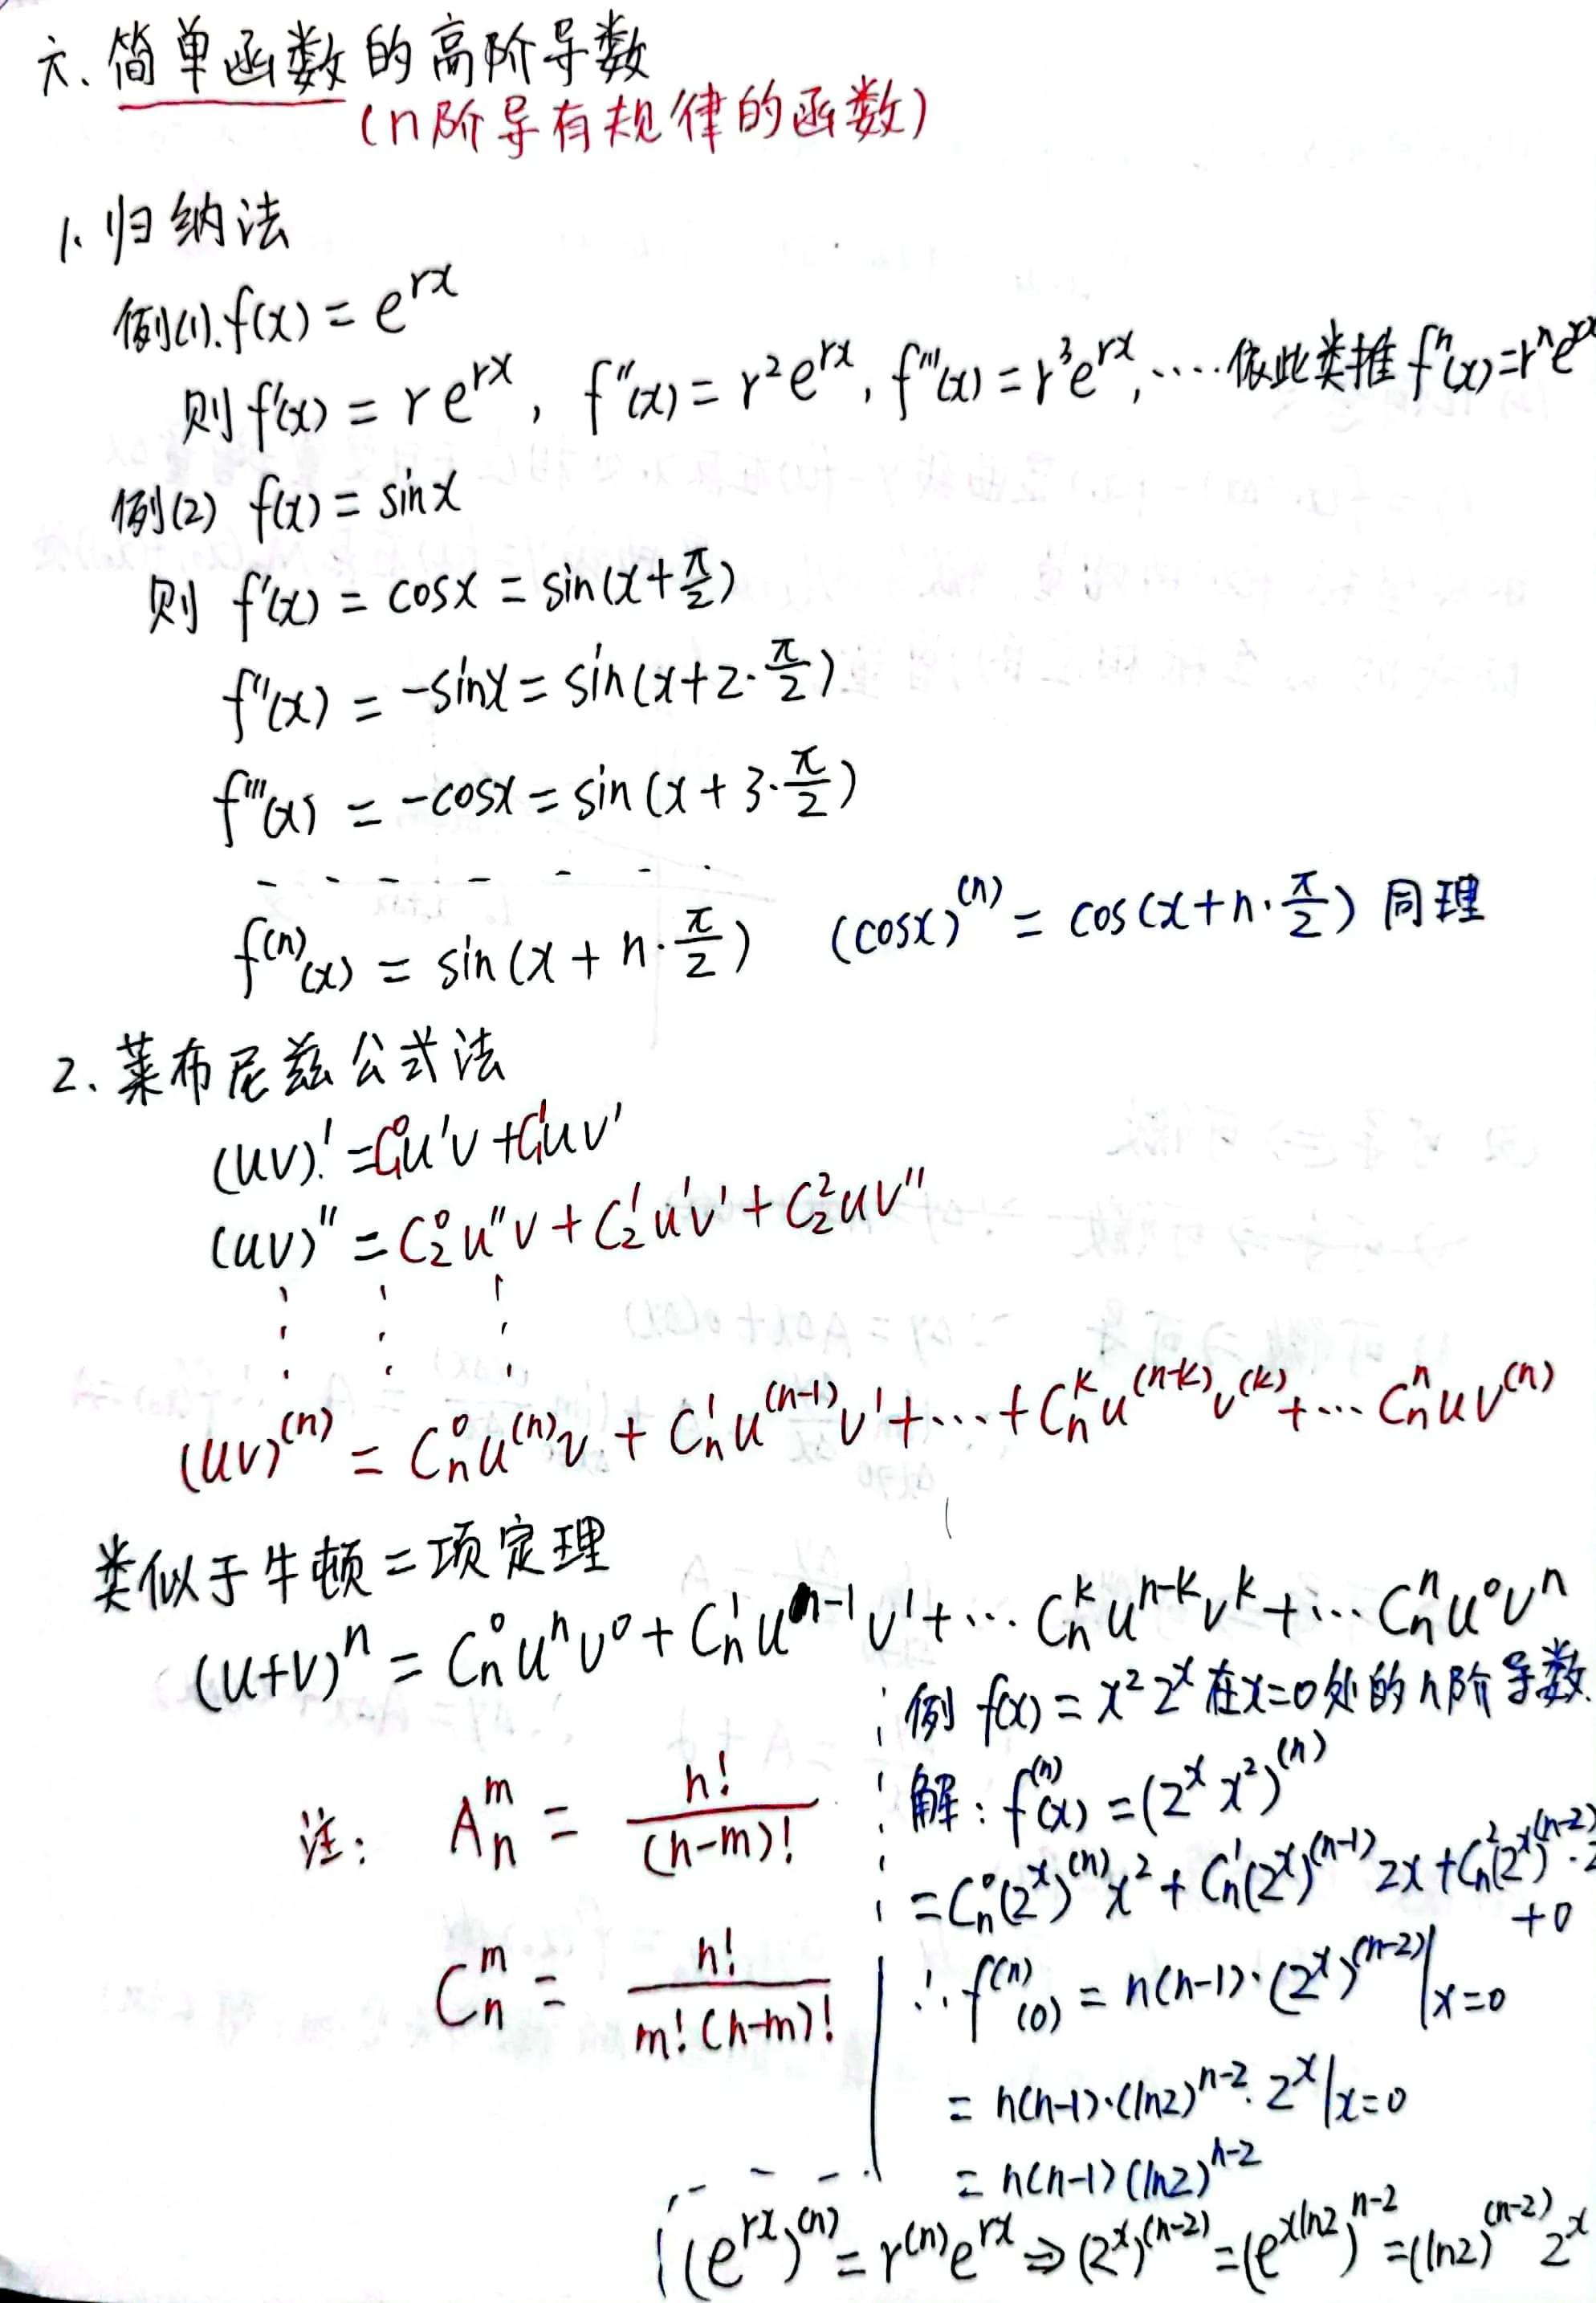 六、简单函数的高阶导数
(n阶导有规律的函数)
1. 归纳法
例(1). f(x) = e^{rx}
则 f'(x) = r e^{rx}, f''(x) = r^2 e^{rx}, f'''(x) = r^3 e^{rx}, ····· 依此类推 f^n(x) = r^n e^{rx}
例(2) f(x) = sinx
则 f'(x) = cosx = sin(x+π/2)
f''(x) = -sinx = sin(x+2·π/2)
f'''(x) = -cosx = sin(x+3·π/2)
- - - - - - ·
f^{(n)}(x) = sin(x+n·π/2) (cosx)^{(n)} = cos(x+n·π/2) 同理
2、莱布尼兹公式法
(uv)' = C_1^0 u'v + C_1^1 uv'
(uv)'' = C_2^0 u''v + C_2^1 u'v' + C_2^2 uv''
⋮ ⋮ ⋮
(uv)^{(n)} = C_n^0 u^{(n)} v + C_n^1 u^{(n-1)} v' + ··· + C_n^k u^{(n-k)} v^{(k)} + ··· C_n^n u v^{(n)}
类似于牛顿二项定理
(u+v)^n = C_n^0 u^n v^0 + C_n^1 u^{n-1} v^1 + ··· C_n^k u^{n-k} v^k + ··· C_n^n u^0 v^n
注: A_n^m = n!/(n-m)!
C_n^m = n!/(m!(n-m)!)
例 f(x) = x^2 2^x 在x=0处的n阶导数.
解: f^{(n)}(x) = (2^x x^2)^{(n)}
= C_n^0 (2^x)^{(n)} x^2 + C_n^1 (2^x)^{(n-1)} 2x + C_n^2 (2^x)^{(n-2)}·2
+0
∴ f^{(n)}(0) = n(n-1)·(2^x)^{(n-2)}|x=0
= n(n-1)·(ln2)^{n-2}·2^x|x=0
= n(n-1)(ln2)^{n-2}
(e^{rx})^{(n)} = r^{(n)} e^{rx} ⇒ (2^x)^{(n-2)} = (e^{xln2})^{n-2} = (ln2)^{(n-2)} 2^x